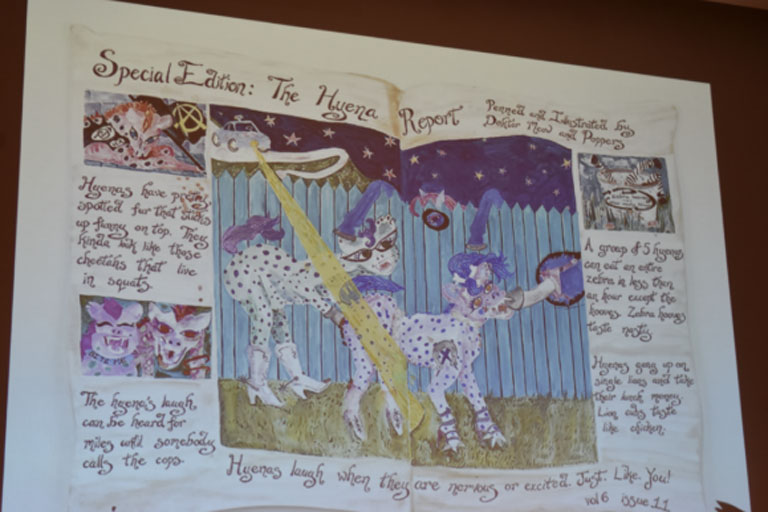 Special Edition: The Hyena Report
Penned and Illustrated by
Doktor Meow and Peppers
Hyenas have
spotted fur that sticks
up funny on top. They
kinda look like those
cheetahs that live
in squats.
The hyena's laugh
can be heard for
miles until somebody
calls the cops.
A group of 5 hyenas
can eat an entire
zebra in less than
an hour except the
hooves. Zebra hooves
taste nasty.
Hyenas gang up on
single lions and take
their lunch money.
Lion cubs taste
like chicken.
Hyenas laugh when they are nervous or excited. Just. Like. You!
vol 6 issue 11